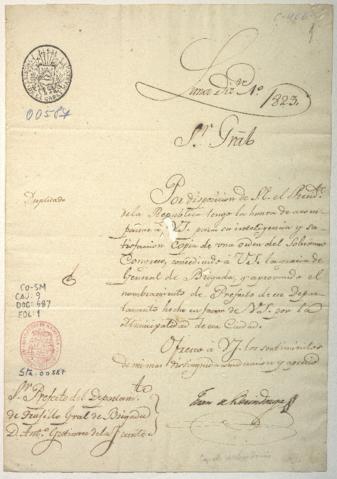 00587
Lima Dic.e 1.o 1823.
S.r Gral
Duplicado
Por disposicion de S.E. el Presid.te
de la Republica tengo la honra de acom
pañar á V.S. para su inteligencia y sa
tisfaccion copia de una orden del Soberano
Congreso, concediendo á V.S. la
General de Brigada, y aprovando el
nombramiento de Prefecto de ese Depar
tamento hecho en favor de V.S. por la
Municipalidad de esa Ciudad.
Ofresco á V.S. los sentimientos
de mi mas distinguida consideracion y aprecio
CO-SM
CAJ: 9
DOC: 587
FOL: 1
STA. 00587
Juan de Berindoaga
S.r Prefecto del Departam.to
de Truxillo Gral de Brigada
D. Ant.o Gutierrez de la Fuente